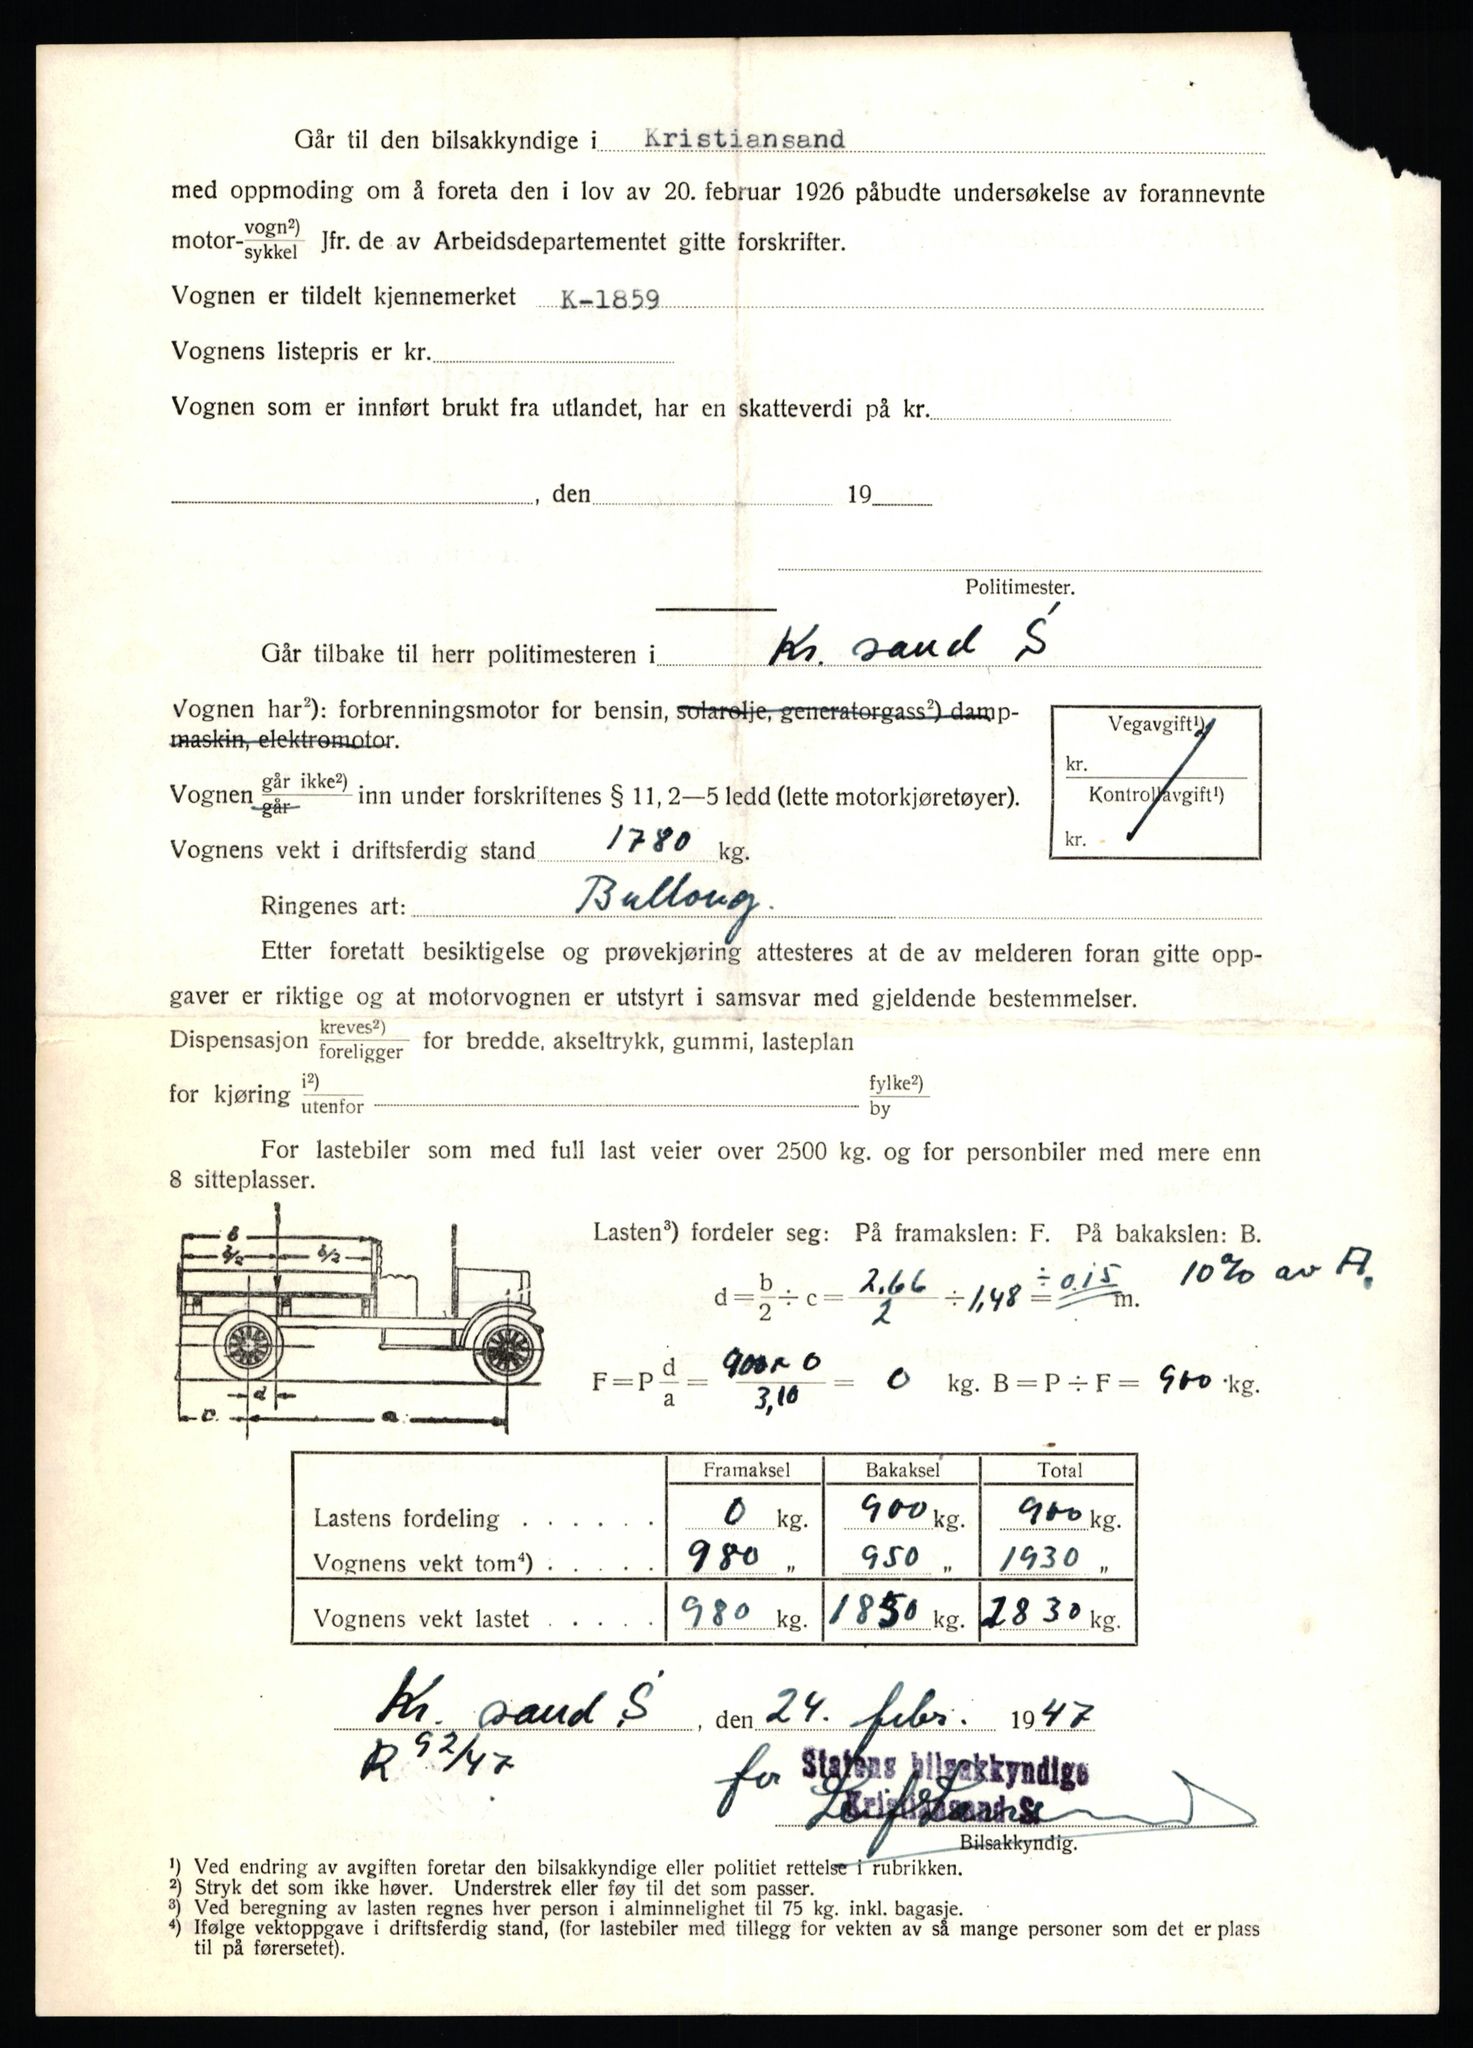 Går til den bilsakkyndige i Kristiansand
med oppmoding om å foreta den i lov av 20. februar 1926 påbudte undersøkelse av forannevnte
motor-vogn²)/sykkel Jfr. de av Arbeidsdepartementet gitte forskrifter.
Vognen er tildelt kjennemerket K-1859
Vognens listepris er kr.
Vognen som er innført brukt fra utlandet, har en skatteverdi på kr.
, den 19
Politimester.
Går tilbake til herr politimesteren i Kr. sand S
Vognen har²): forbrenningsmotor for bensin, solarolje, generatorgass²) damp-
maskin, elektromotor.
Vegavgift¹)
kr.
Kontrollavgift¹)
kr.
Vognen går ikke²)/går inn under forskriftenes § 11, 2—5 ledd (lette motorkjøretøyer).
Vognens vekt i driftsferdig stand 1780 kg.
Ringenes art: Ballong.
Etter foretatt besiktigelse og prøvekjøring attesteres at de av melderen foran gitte opp-
gaver er riktige og at motorvognen er utstyrt i samsvar med gjeldende bestemmelser.
Dispensasjon kreves²)/foreligger for bredde, akseltrykk, gummi, lasteplan
for kjøring i²)/utenfor fylke²)/by
For lastebiler som med full last veier over 2500 kg. og for personbiler med mere enn
8 sitteplasser.
b
b/2 b/2
d
c. a.
Lasten³) fordeler seg: På framakslen: F. På bakakslen: B.
d = b/2 ÷ c = 2,66/2 ÷ 1,48 = ÷ 0,15 m. 10% av A.
F = P d/a = 900 x 0/3,10 = 0 kg. B = P ÷ F = 900 kg.
Framaksel Bakaksel Total
Lastens fordeling . . . . . . 0 kg. 900 kg. 900 kg.
Vognens vekt tom⁴) . . . . . 980 „ 950 „ 1930 „
Vognens vekt lastet . . . . . 980 kg. 1850 kg. 2830 kg.
Kr. sand S, den 24. febr. 1947
R 92/47
for Statens bilsakkyndige
Kristiansand S.
Bilsakkyndig.
¹) Ved endring av avgiften foretar den bilsakkyndige eller politiet rettelse i rubrikken.
²) Stryk det som ikke høver. Understrek eller føy til det som passer.
³) Ved beregning av lasten regnes hver person i alminnelighet til 75 kg. inkl. bagasje.
⁴) Ifølge vektoppgave i driftsferdig stand, (for lastebiler med tillegg for vekten av så mange personer som det er plass
til på førersetet).